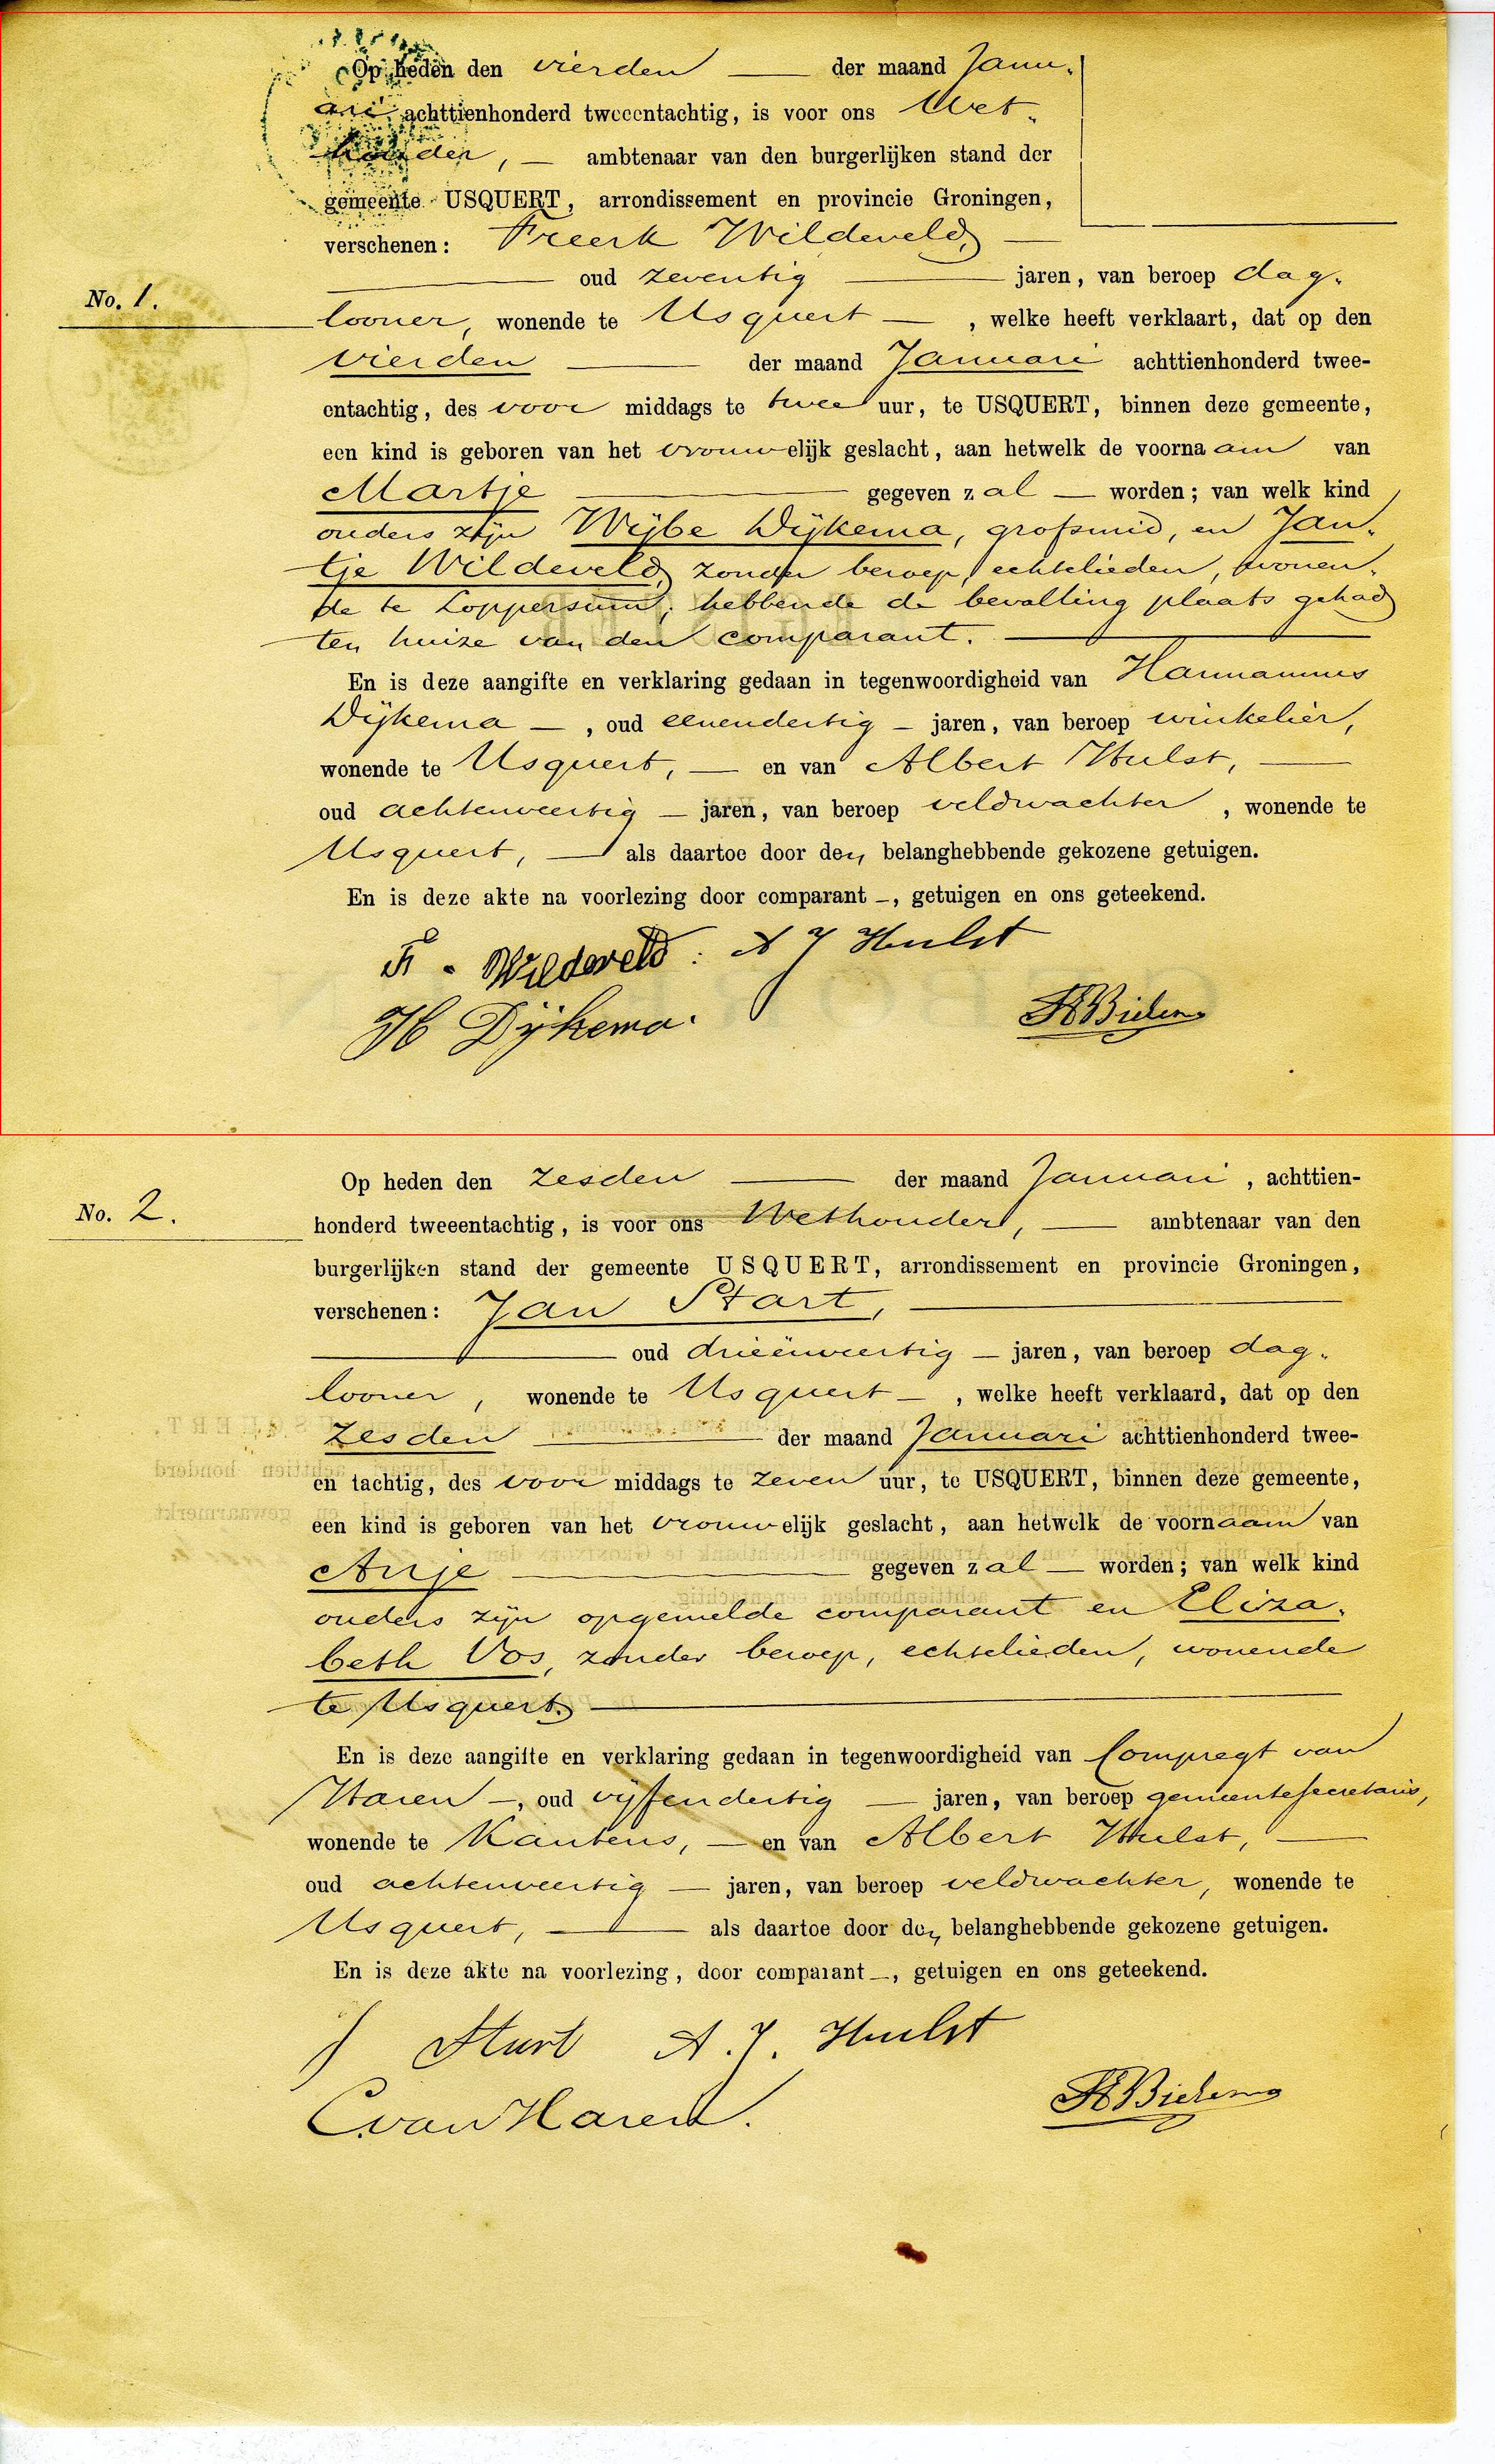 Op heden den vierden — der maand Janu-
ari achttienhonderd tweeentachtig, is voor ons Wet-
houder, — ambtenaar van den burgerlijken stand der
gemeente USQUERT, arrondissement en provincie Groningen,
verschenen: Freerk Wildeveld, —
— oud zeventig — jaren, van beroep dag-
No. 1.
looner, wonende te Usquert — , welke heeft verklaart, dat op den
vierden — der maand Januari achttienhonderd twee-
entachtig, des voor middags te twee uur, te USQUERT, binnen deze gemeente,
een kind is geboren van het vrouwelijk geslacht, aan hetwelk de voornaam van
Martje — gegeven zal — worden; van welk kind
ouders zijn Wijbe Dijkema, grofsmid, en Jan-
tje Wildeveld, zonder beroep, echtelieden, wonen-
de te Loppersum; hebbende de bevalling plaats gehad
ten huize van den comparant. —
En is deze aangifte en verklaring gedaan in tegenwoordigheid van Harmannus
Dijkema — , oud eenendertig — jaren, van beroep winkelier,
wonende te Usquert, — en van Albert Hulst, —
oud achtenveertig — jaren, van beroep veldwachter , wonende te
Usquert, — als daartoe door den belanghebbende gekozene getuigen.
En is deze akte na voorlezing door comparant —, getuigen en ons geteekend.
F. Wildeveld. A J Hulst
H Dijkema.
Op heden den zesden — der maand Januari , achttien-
No. 2.
honderd tweeentachtig, is voor ons Wethouder, — ambtenaar van den
burgerlijken stand der gemeente USQUERT, arrondissement en provincie Groningen,
verschenen: Jan Start, —
— oud drieënveertig — jaren, van beroep dag-
looner , wonende te Usquert — , welke heeft verklaard, dat op den
zesden — der maand Januari achttienhonderd twee-
en tachtig, des voor middags te zeven uur, te USQUERT, binnen deze gemeente,
een kind is geboren van het vrouwelijk geslacht, aan hetwelk de voornaam van
Anje — gegeven zal — worden; van welk kind
ouders zijn opgemelde comparant en Eliza-
beth Vos, zonder beroep, echtelieden, wonende
te Usquert. —
En is deze aangifte en verklaring gedaan in tegenwoordigheid van Compregt van
Haren —, oud vijfendertig — jaren, van beroep gemeentesecretaris,
wonende te Kantens, — en van Albert Hulst, —
oud achtenveertig — jaren, van beroep veldwachter, wonende te
Usquert, — als daartoe door den belanghebbende gekozene getuigen.
En is deze akte na voorlezing, door comparant —, getuigen en ons geteekend.
J Start A. J. Hulst
C van Haren.